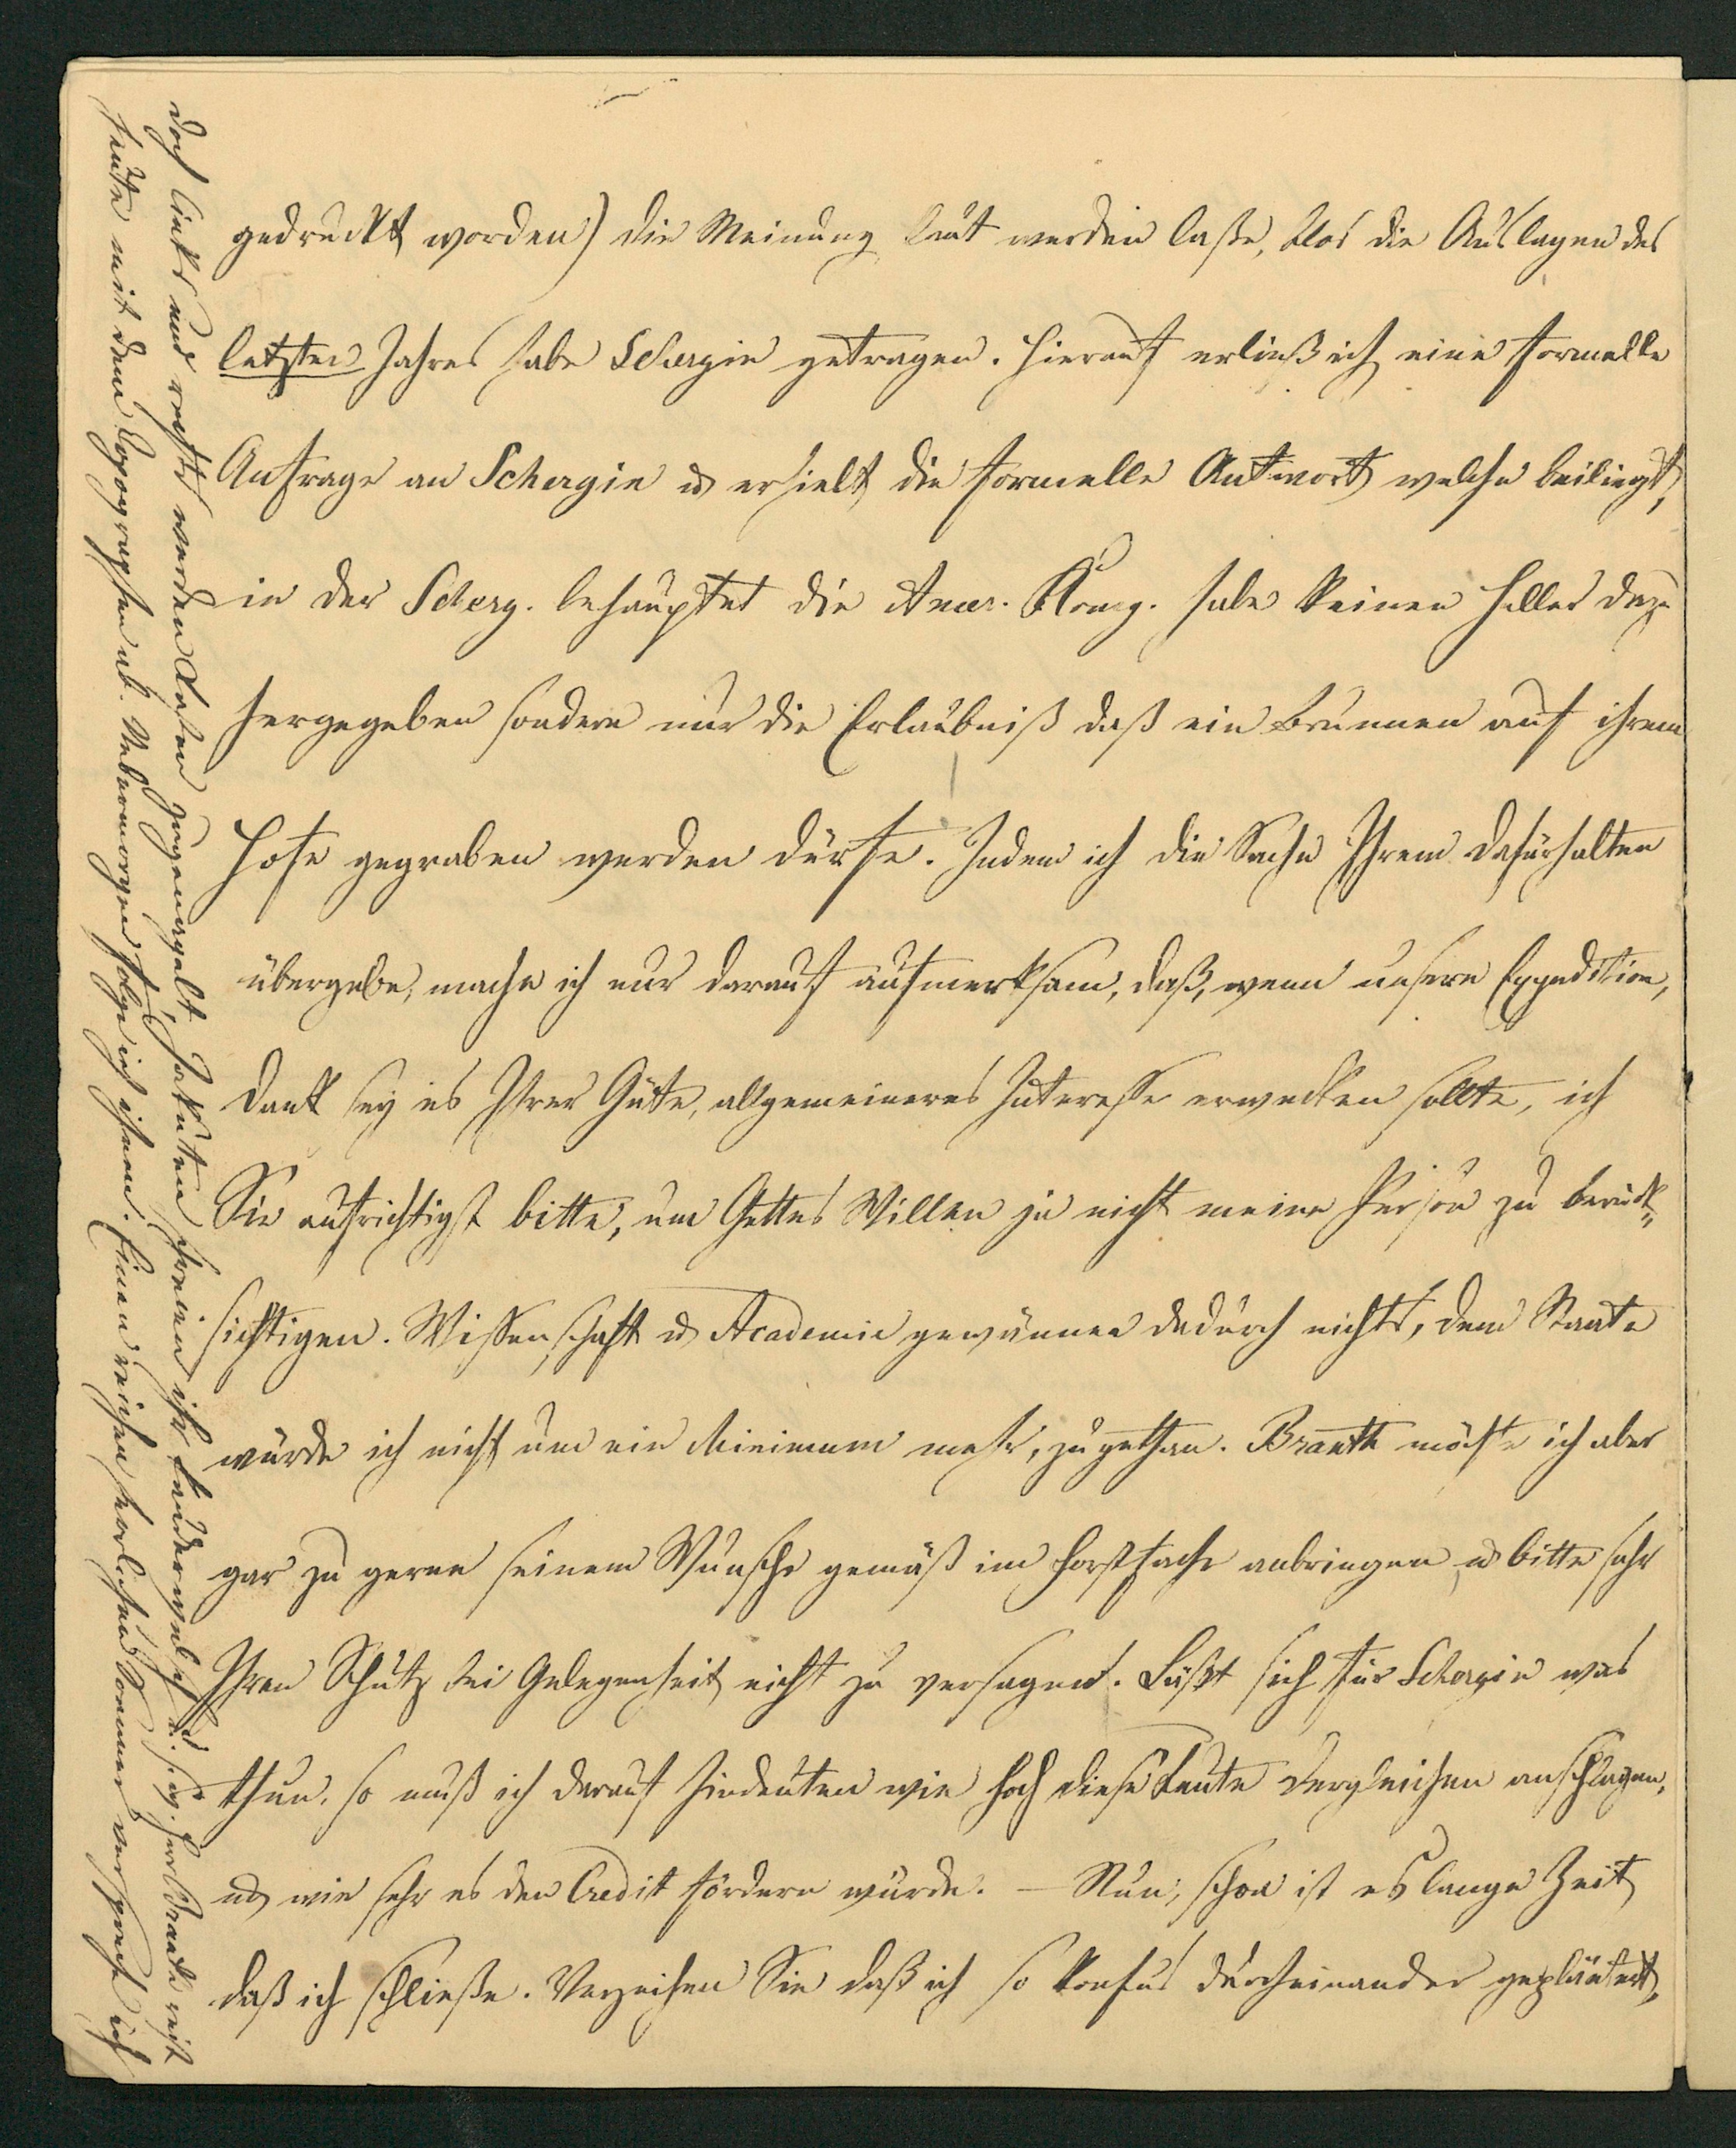 gedruckt worden) die Meinung laut werden laße, blos die Auslagen des
letzten Jahres habe Schergin getragen. Hierauf erließ ich eine formelle
Anfrage an Schergin u erhielt die formelle Antwort welche beiliegt,
in der Scherg. behauptet die Amer. Komp. habe keinen Heller dazu
hergegeben sondern nur die Erlaubniß daß ein Brunnen auf ihrem
Hofe gegraben werden dürfe. Indem ich die Sache Ihrem Dafürhalten
übergebe, mache ich nur darauf aufmerksam, daß, wenn unsere Expedition,
Dank sey es Ihrer Güte, allgemeineres Interesse erwecken sollte, ich
Sie aufrichtigst bitte, um Gottes Willen ja nicht meine Person zu berück-
sichtigen. Wissenschaft u Academie gewännen dadurch nichts, dem Staate
würde ich nicht um ein Minimum mehr, zugethan. Branth möchte ich aber
gar zu gerne seinem Wunsche gemäß im Forstfache anbringen u bitte sehr
Ihren Schutz bei Gelegenheit nicht zu versagen. Läßt sich für Schergin was
thun, so muß ich darauf hindeuten wie hoch diese Leute dergleichen anschlagen,
u wie sehr es den Credit fördern würde. — Nun, schon ist es lange Zeit
daß ich schließe. Verzeihen Sie daß ich so konfus durcheinander geplaudert,
doch links und rechts werden Daten zugenagelt, Jakuten schreien ihr Kauderwelsch u. s. w. Herr Branth reist
heute mit dem Topographen ab. Uebermorgen folge ich ihnen. Einen reichen herrlichen Sommer verspreche ich